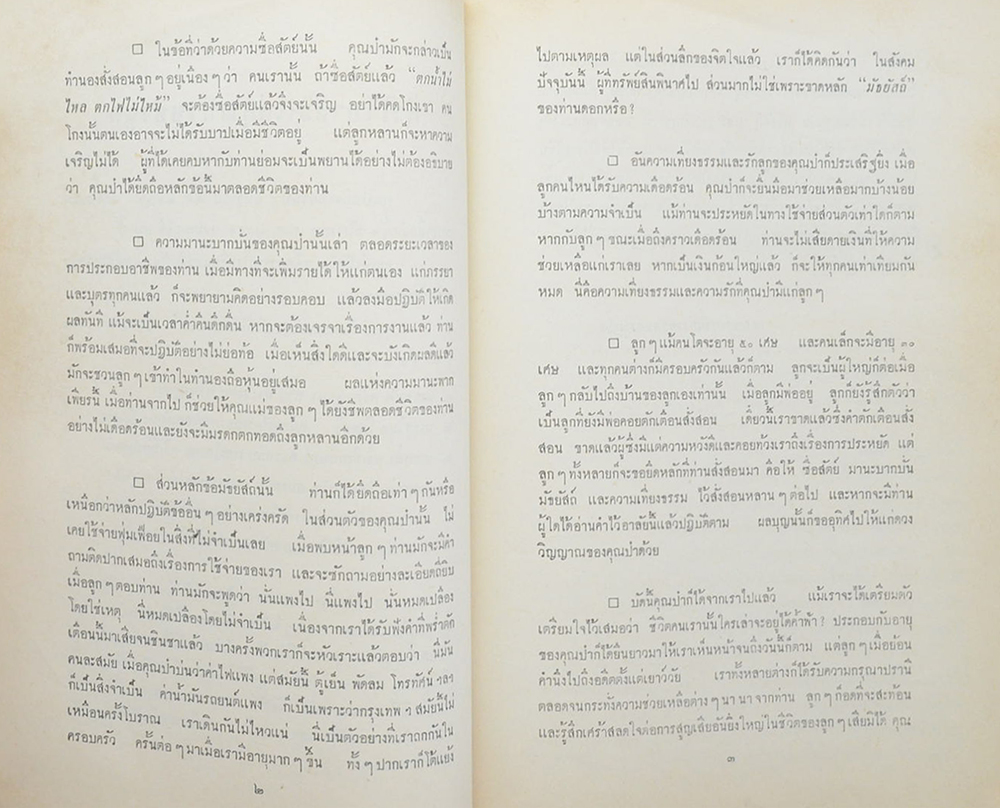 □ ในข้อที่ว่าด้วยความซื่อสัตย์นั้น คุณป๋ามักจะกล่าวเป็น
ทำนองสั่งสอนลูก ๆ อยู่เนือง ๆ ว่า คนเรานั้น ถ้าซื่อสัตย์แล้ว “ตกน้ำไม่
ไหล ตกไฟไม่ไหม้” จะต้องซื่อสัตย์แล้วจึงจะเจริญ อย่าได้คดโกงเขา คน
โกงนั้นตนเองอาจจะไม่ได้รับบาปเมื่อมีชีวิตอยู่ แต่ลูกหลานก็จะหาความ
เจริญไม่ได้ ผู้ที่ได้เคยคบหากับท่านย่อมจะเป็นพยานได้อย่างไม่ต้องอธิบาย
ว่า คุณป๋าได้ยึดถือหลักข้อนี้มาตลอดชีวิตของท่าน
□ ความมานะบากบั่นของคุณป๋านั้นเล่า ตลอดระยะเวลาของ
การประกอบอาชีพของท่าน เมื่อมีทางที่จะเพิ่มรายได้ให้แก่ตนเอง แก่ภรรยา
และบุตรทุกคนแล้ว ก็จะพยายามคิดอย่างรอบคอบ แล้วลงมือปฏิบัติให้เกิด
ผลทันที แม้จะเป็นเวลาค่ำคืนดึกดื่น หากจะต้องเจรจาเรื่องการงานแล้ว ท่าน
ก็พร้อมเสมอที่จะปฏิบัติอย่างไม่ย่อท้อ เมื่อเห็นสิ่งใดดีและจะบังเกิดผลดีแล้ว
มักจะชวนลูก ๆ เข้าทำในทำนองถือหุ้นอยู่เสมอ ผลแห่งความมานะพาก
เพียรนี้ เมื่อท่านจากไป ก็ช่วยให้คุณแม่ของลูก ๆ ได้ยังชีพตลอดชีวิตของท่าน
อย่างไม่เดือดร้อนและยังจะมีมรดกตกทอดถึงลูกหลานอีกด้วย
□ ส่วนหลักข้อมัธยัสถ์นั้น ท่านก็ได้ยึดถือเท่า ๆ กันหรือ
เหนือกว่าหลักปฏิบัติข้ออื่น ๆ อย่างเคร่งครัด ในส่วนตัวของคุณป๋านั้น ไม่
เคยใช้จ่ายฟุ่มเฟือยในสิ่งที่ไม่จำเป็นเลย เมื่อพบหน้าลูก ๆ ท่านมักจะมีคำ
ถามติดปากเสมอถึงเรื่องการใช้จ่ายของเรา และจะซักถามอย่างละเอียดถี่ยิบ
เมื่อลูก ๆ ตอบท่าน ท่านมักจะพูดว่า นั่นแพงไป นี่แพงไป นั่นหมดเปลือง
โดยใช่เหตุ นี่หมดเปลืองโดยไม่จำเป็น เนื่องจากเราได้รับฟังคำที่พร่ำตัก
เตือนนี้มาเสียจนชินชาแล้ว บางครั้งพวกเราก็จะหัวเราะแล้วตอบว่า นี่มัน
คนละสมัย เมื่อคุณป๋าบ่นว่าค่าไฟแพง แต่สมัยนี้ ตู้เย็น พัดลม โทรทัศน์ ฯลฯ
ก็เป็นสิ่งจำเป็น ค่าน้ำมันรถยนต์แพง ก็เป็นเพราะว่ากรุงเทพ ฯ สมัยนี้ไม่
เหมือนครั้งโบราณ เราเดินกันไม่ไหวแน่ นี่เป็นตัวอย่างที่เราถกกันใน
ครอบครัว ครั้นต่อ ๆ มาเมื่อเรามีอายุมาก ๆ ขึ้น ทั้ง ๆ ปากเราก็โต้แย้ง
๒
ไปตามเหตุผล แต่ในส่วนลึกของจิตใจแล้ว เราก็ได้คิดกันว่า ในสังคม
ปัจจุบันนี้ ผู้ที่ทรัพย์สินพินาศไป ส่วนมากไม่ใช่เพราะขาดหลัก “มัธยัสถ์”
ของท่านดอกหรือ ?
□ อันความเที่ยงธรรมและรักลูกของคุณป๋าก็ประเสริฐยิ่ง เมื่อ
ลูกคนไหนได้รับความเดือดร้อน คุณป๋าก็จะยื่นมือมาช่วยเหลือมากบ้างน้อย
บ้างตามความจำเป็น แม้ท่านจะประหยัดในทางใช้จ่ายส่วนตัวเท่าใดก็ตาม
หากกับลูก ๆ ขณะเมื่อถึงคราวเดือดร้อน ท่านจะไม่เสียดายเงินที่ให้ความ
ช่วยเหลือแก่เราเลย หากเป็นเงินก้อนใหญ่แล้ว ก็จะให้ทุกคนเท่าเทียมกัน
หมด นี่คือความเที่ยงธรรมและความรักที่คุณป๋ามีแก่ลูก ๆ
□ ลูก ๆ แม้คนโตจะอายุ ๕๐ เศษ และคนเล็กจะมีอายุ ๓๐
เศษ และทุกคนต่างก็มีครอบครัวกันแล้วก็ตาม ลูกจะเป็นผู้ใหญ่ก็ต่อเมื่อ
ลูก ๆ กลับไปถึงบ้านของลูกเองเท่านั้น เมื่อลูกมีพ่ออยู่ ลูกก็ยังรู้สึกตัวว่า
เป็นลูกที่ยังมีพ่อคอยตักเตือนสั่งสอน เดี๋ยวนี้เราขาดแล้วซึ่งคำตักเตือนสั่ง
สอน ขาดแล้วผู้ซึ่งมีแต่ความหวังดีและคอยท้วงเราถึงเรื่องการประหยัด แต่
ลูก ๆ ทั้งหลายก็จะขอยึดหลักที่ท่านสั่งสอนมา คือให้ ซื่อสัตย์ มานะบากบั่น
มัธยัสถ์ และความเที่ยงธรรม ไว้สั่งสอนหลาน ๆ ต่อไป และหากจะมีท่าน
ผู้ใดได้อ่านคำไว้อาลัยนี้แล้วปฏิบัติตาม ผลบุญนั้นก็ขออุทิศไปให้แก่ดวง
วิญญาณของคุณป๋าด้วย
□ บัดนี้คุณป๋าก็ได้จากเราไปแล้ว แม้เราจะได้เตรียมตัว
เตรียมใจไว้เสมอว่า ชีวิตคนเรานั้นใครเล่าจะอยู่ได้ค้ำฟ้า ? ประกอบกับอายุ
ของคุณป๋าก็ได้ยืนยาวมาให้เราเห็นหน้าจนถึงวันนี้ก็ตาม แต่ลูก ๆ เมื่อย้อน
คำนึงไปถึงอดีตตั้งแต่เยาว์วัย เราทั้งหลายต่างก็ได้รับความกรุณาปรานี
ตลอดจนกระทั่งความช่วยเหลือต่าง ๆ นา นา จากท่าน ลูก ๆ ก็อดที่จะสะท้อน
และรู้สึกเศร้าสลดใจต่อการสูญเสียอันยิ่งใหญ่ในชีวิตของลูก ๆ เสียมิได้ คุณ
๓